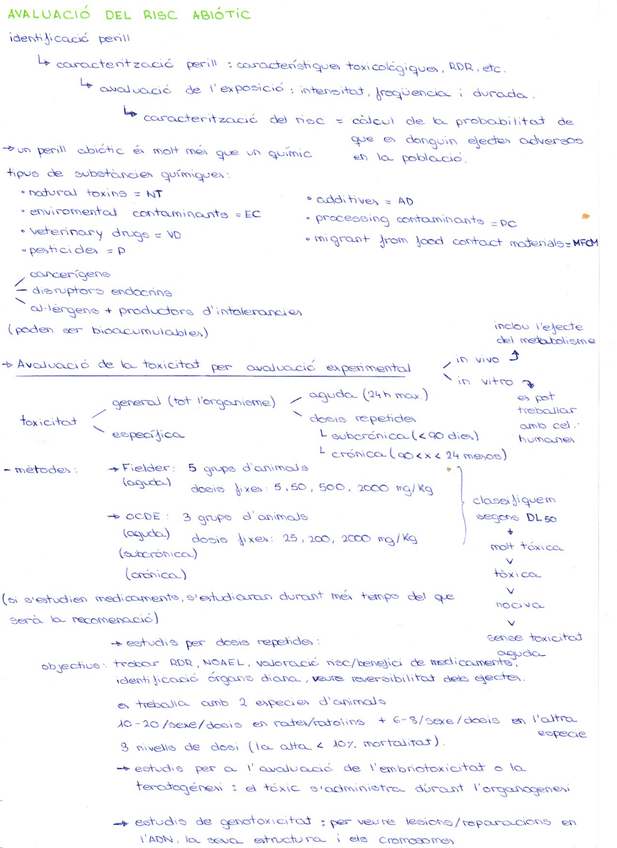 AVALUACIÓ DEL RISC ABIÒTIC
identificació perill
↳ caracterització perill : característiques toxicològiques, RDR, etc.
↳ avaluació de l'exposició : intensitat, freqüència i durada.
↳ caracterització del risc = càlcul de la probabilitat de
que es donguin efectes adversos
en la població.
→ un perill abiòtic és molt més que un químic
tipus de substàncies químiques:
• natural toxins = NT
• enviromental contaminants = EC
• veterinary drugs = VD
• pesticides = P
• additives = AD
• processing contaminants = PC
• migrant from food contact materials = MFCM
cancerígens
disruptors endocrins
al·lèrgens + productors d'intolerancies
(poden ser bioacumulables)
→ Avaluació de la toxicitat per avaluació experimental
in vivo
inclou l'efecte
del metabolisme
in vitro
es pot
treballar
amb cel.
humanes
toxicitat
general (tot l'organisme)
aguda (24h max.)
dosis repetides
↳ subcrònica (< 90 dies)
↳ crònica (90 < x < 24 mesos)
específica
- mètodes:
→ Fielder: 5 grups d'animals
(aguda) dosis fixes: 5, 50, 500, 2000 mg/kg
→ OCDE: 3 grups d'animals
(aguda) dosis fixes: 25, 200, 2000 mg/kg
(subcrònica)
(crònica)
classifiquem
segons DL50
↓
molt tòxica
v
tòxica
v
nociva
v
sense toxicitat
aguda
(si s'estudien medicaments, s'estudiaran durant més temps del que
serà la recomenació)
→ estudis per dosis repetides:
objectius: trobar RDR, NOAEL, valoració risc/benefici de medicaments,
identificació òrgans diana, veure reversibilitat dels efectes.
es treballa amb 2 especies d'animals
10-20/sexe/dosis en rates/ratolins + 6-8/sexe/dosis en l'altra
especie
3 nivells de dosi (la alta < 10% mortalitat).
→ estudis per a l'avaluació de l'embriotoxicitat o la
teratogènesi : el tòxic s'administra durant l'organogenesi
→ estudis de genotoxicitat : per veure lesions/reparacions en
l'ADN, la seva estructura i els cromosomes